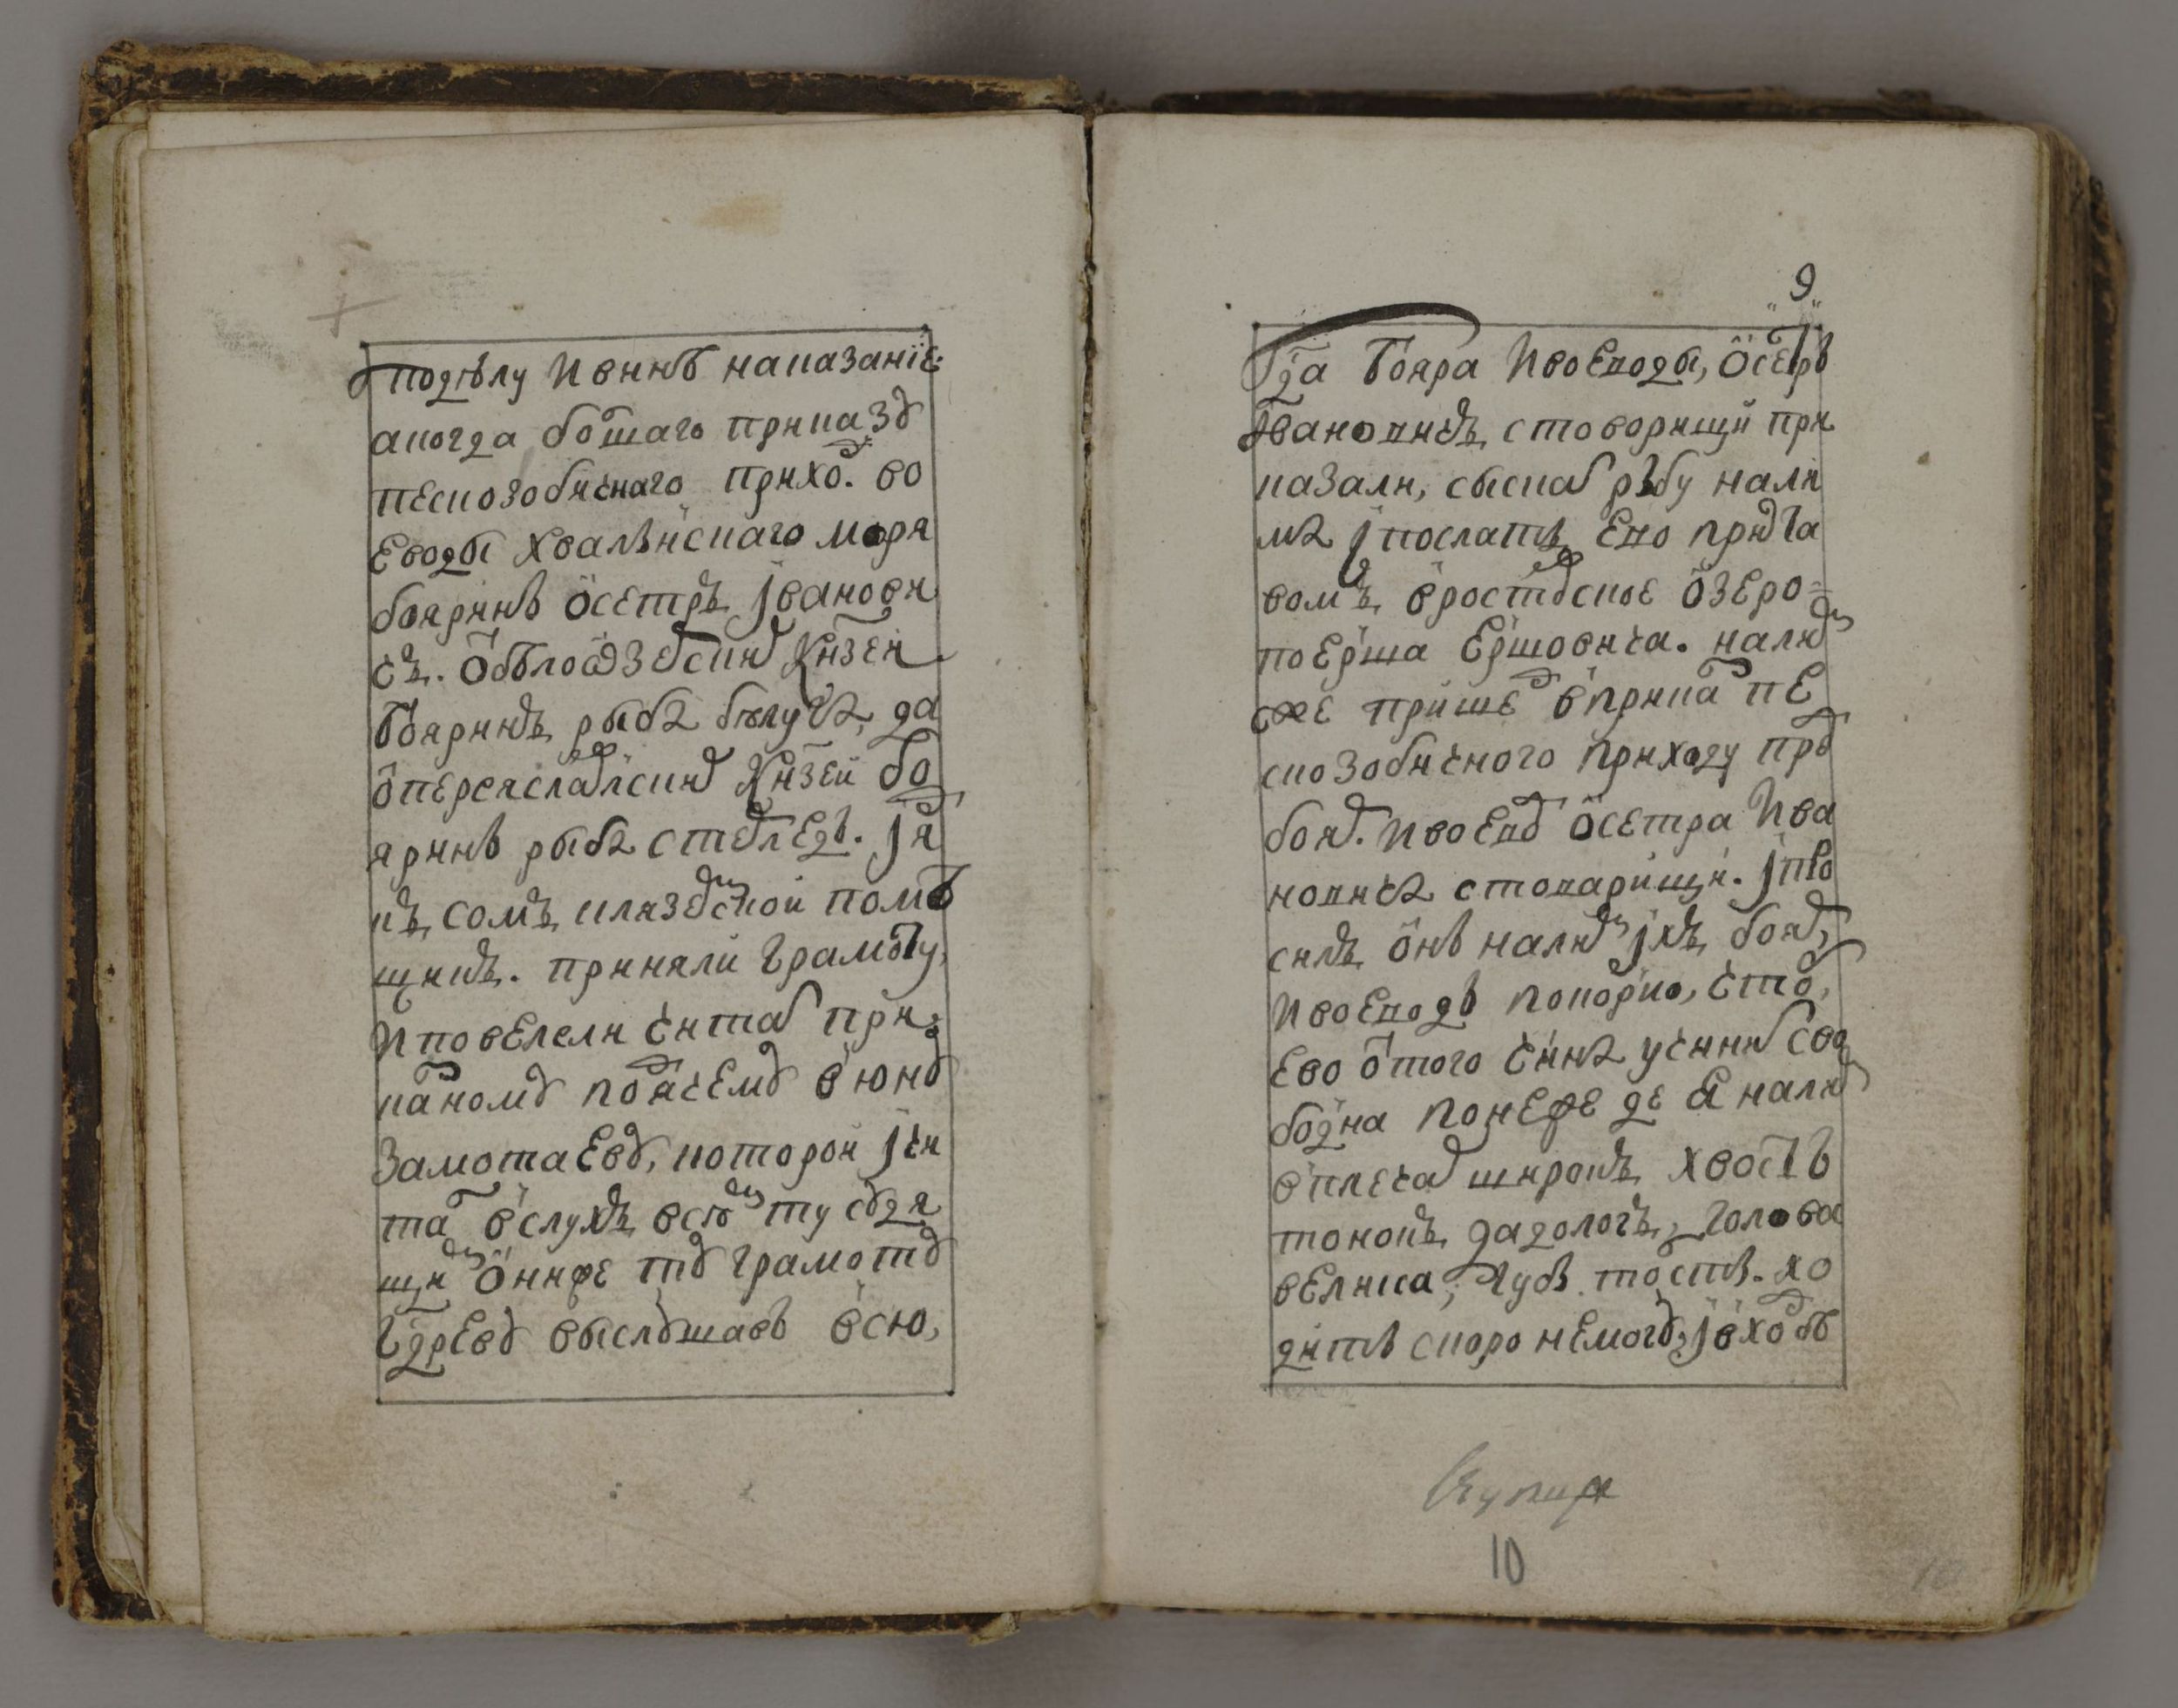 подѣлу ивинѣ наказанїе:
акогда болшаго приказу
пескозобичнаго прихо. во
еводы хвалынскаго моря
бояринъ осетръ jванови
чъ. обѣлоѡзерскии князеи
бояринъ рыба бѣлуга, да
опереяславскии князеи бо
яринъ рыба стерледь. jя
къ сомъ, клязмскои помѣ
щикъ. приняли грамоту,
и повелели читать при
казному подячему вьюну
замотаеву, которои jчи
талъ вслухъ всю ту судя
щимъ онифе тпу грамоту
гдреву выслушавъ всю,
9
Гда бояра ивоеводы, осетръ
jвановичъ, стоворищи при
казали, сыскать рыбу нали
ма jпослать ево приста
вомъ, вростовское озеро=
поерша ершовича. налим
же прише вприка пе
скозобичного приходу пре
бояр. ивоевод осетра ива
новича стоварищи. jпро
силъ онъ налим jхъ бояр,
ивоеводъ покорно, что,
ево отого чина учинили сво
бодна понеже де я налим
вплечах широкъ хвостъ
тонокъ, дадологъ, голова
велика, губы толсты. хо
дить скоро немогу, jвходъ
Скупия
10
10